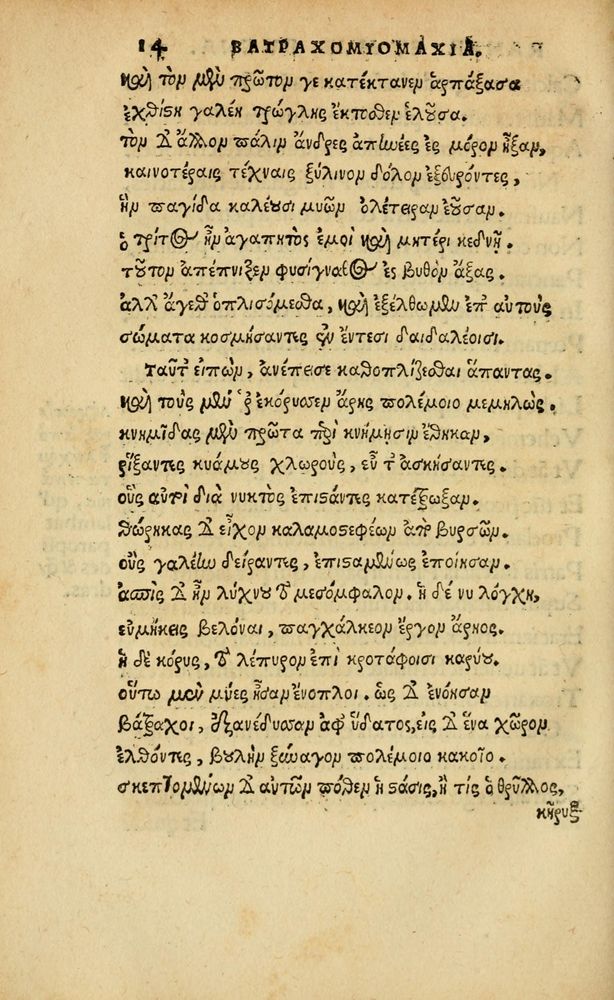 14 ΒΑΤΡΑΧΟΜΥΟΜΑΧΙΑ.
καὶ τὸν μὲν πρῶτον γε κατέκτανεν ἁρπάξασα
ἐχθίση γαλέη τρώγλης ἔκποθεν ἑλοῦσα.
τὸν δ' ἄλλον πάλιν ἄνδρες ἀπηνέες ἐς μόρον ἦξαν,
καινοτέραις τέχναις ξύλινον δόλον ἐξευρόντες,
ἣν παγίδα καλέουσι μυῶν ὀλέτειραν ἐοῦσαν.
ὁ τρίτος ἦν ἀγαπητὸς ἐμοὶ καὶ μητέρι κεδνῇ.
τοῦτον ἀπέπνιξεν φυσίγναθος ἐς βυθὸν ἄξας.
ἀλλ' ἄγεθ' ὁπλισόμεσθα, καὶ ἐξέλθωμεν ἐπ' αὐτοὺς
σώματα κοσμήσαντες ἐν ἔντεσι δαιδαλέοισι.
ταῦτ' εἰπὼν, ἀνέπεισε καθοπλίζεσθαι ἅπαντας.
καὶ τοὺς μέν ῥ' ἐκόρυσσεν ἄρης πολέμοιο μεμηλώς.
κνημῖδας μὲν πρῶτα περὶ κνήμησιν ἔθηκαν,
ῥίξαντες κυάμους χλωροὺς, εὖ τ' ἀσκήσαντες.
οὓς αὐτοὶ διὰ νυκτὸς ἐπιστάντες κατέτρωξαν.
θώρηκας δ' εἶχον καλαμοστεφέων ἀπὸ βυρσῶν.
οὓς γαλέην δείραντες, ἐπισταμένως ἐποίησαν.
ἀσπὶς δ' ἦν λύχνου τὸ μεσόμφαλον. ἡ δέ νυ λόγχη,
εὐμήκεις βελόναι, παγχάλκεον ἔργον ἄρηος.
ἡ δὲ κόρυς, τὸ λέπυρον ἐπὶ κροτάφοισι καρύου.
οὕτω μὲν μύες ἦσαν ἔνοπλοι. ὡς δ' ἐνόησαν
βάτραχοι, ἐξανέδυσαν ἀφ' ὕδατος, εἰς δ' ἕνα χῶρον
ἐλθόντες, βουλὴν ξύναγον πολέμοιο κακοῖο.
σκεπτομένων δ' αὐτῶν πόθεν ἡ στάσις, ἢ τίς ὁ θρύλλος,
κῆρυξ